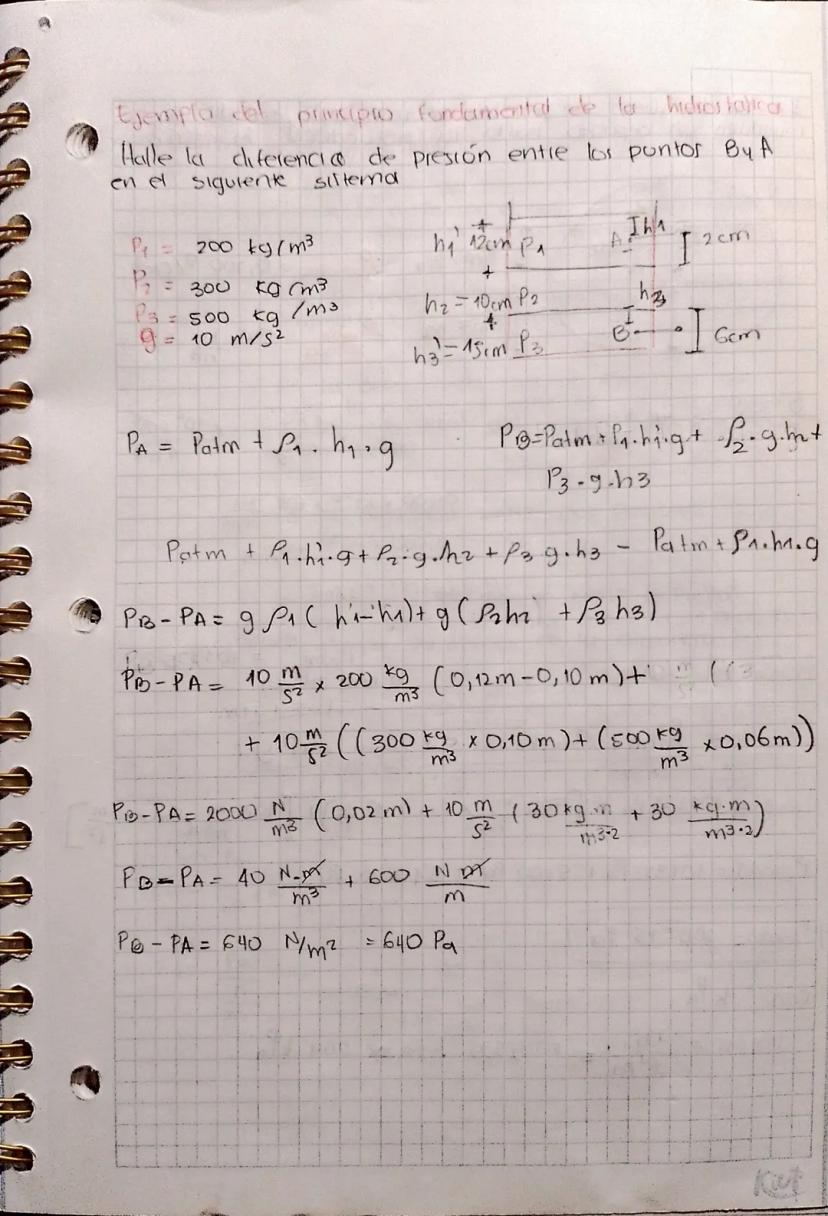 Ejemplo del principio fundamental de la hidrostatica
Halle la diferencia de presión entre los puntos B y A
en el siguiente sistema
P1 = 200 kg/m³
P2 = 300 kg/m³
P3 = 500 kg/m³
g = 10 m/s²
h1' 12cm P1 A Ih1 2cm
+
h2 = 10cm P2 h3
+
h3' = 15cm P3 B 6cm
PA = Patm + ρ1 . h1 . g
PB = Patm + ρ1.h1'.g + ρ2.g.h2 +
ρ3 . g . h3
Patm + ρ1.h1'.g + ρ2.g.h2 + ρ3 g.h3 - Patm + ρ1.h1.g
PB - PA = g ρ1 ( h'1 - h1) + g ( ρ2h2 + ρ3 h3)
PB - PA = 10 m/s² x 200 kg/m³ (0,12m - 0,10 m) +
+ 10 m/s² ((300 kg/m³ x 0,10 m) + (500 kg/m³ x 0,06m))
PB - PA = 2000 N/m³ (0,02 m) + 10 m/s² (30 kg.m/m³·² + 30 kg.m/m³·²)
PB - PA = 40 N.m/m³ + 600 N m/m
PB - PA = 640 N/m² = 640 Pa